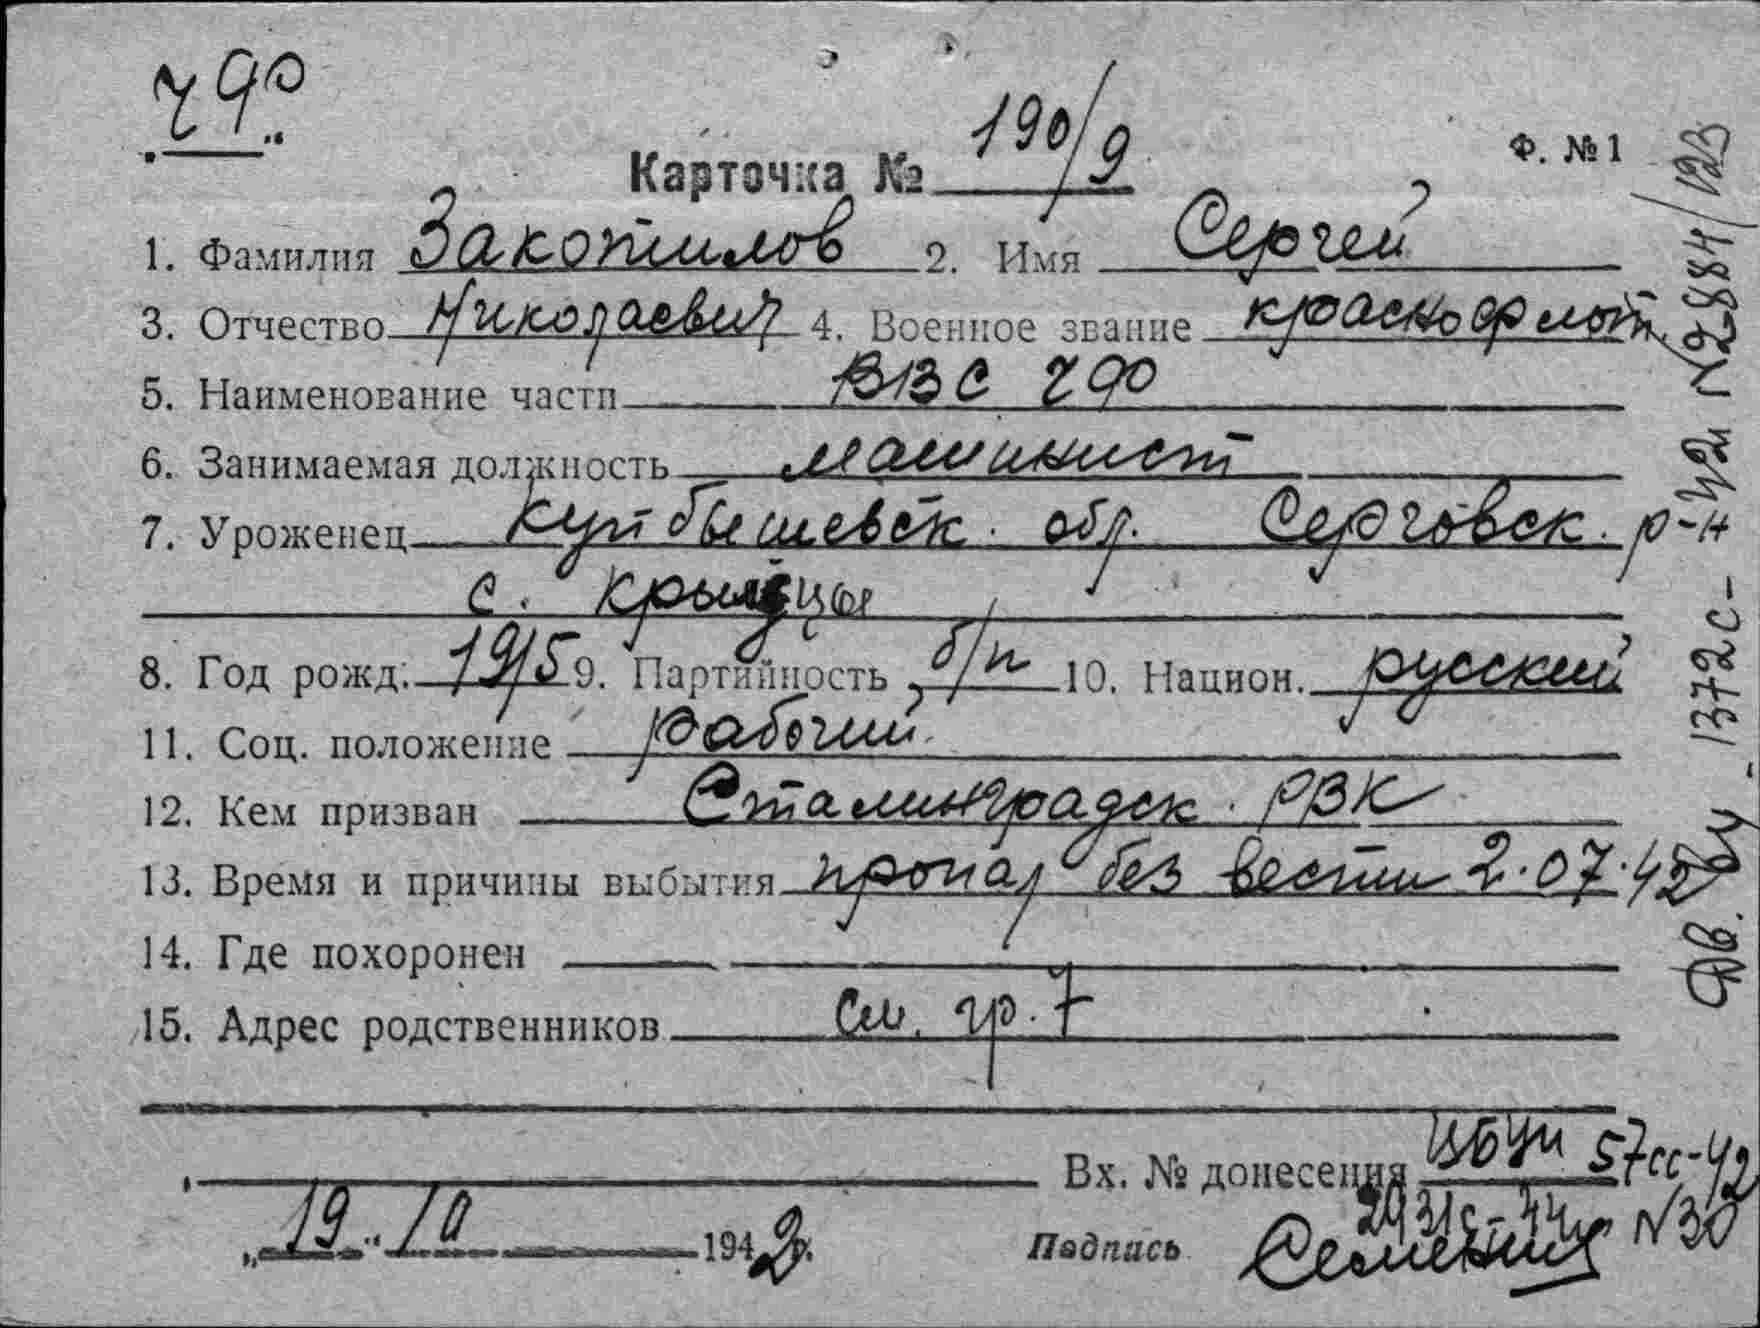 ЧФ
Карточка № 190/9
Ф. № 1
1. Фамилия Закопилов 2. Имя Сергей
3. Отчество Николаевич 4. Военное звание краснофлот.
5. Наименование части ВВС ЧФ
6. Занимаемая должность машинист
7. Уроженец Куйбышевск. обл. Серговск. р-н
с. Крымцы
8. Год рожд. 1915 9. Партийность б/п 10. Национ. русский
11. Соц. положение рабочий
12. Кем призван Сталинградск. РВК
13. Время и причины выбытия пропал без вести 2.07.42
14. Где похоронен
15. Адрес родственников см. гр. 7
Вх. № донесения 57сс-42
„19" 10 1942 г. Подпись
№30
1372с-